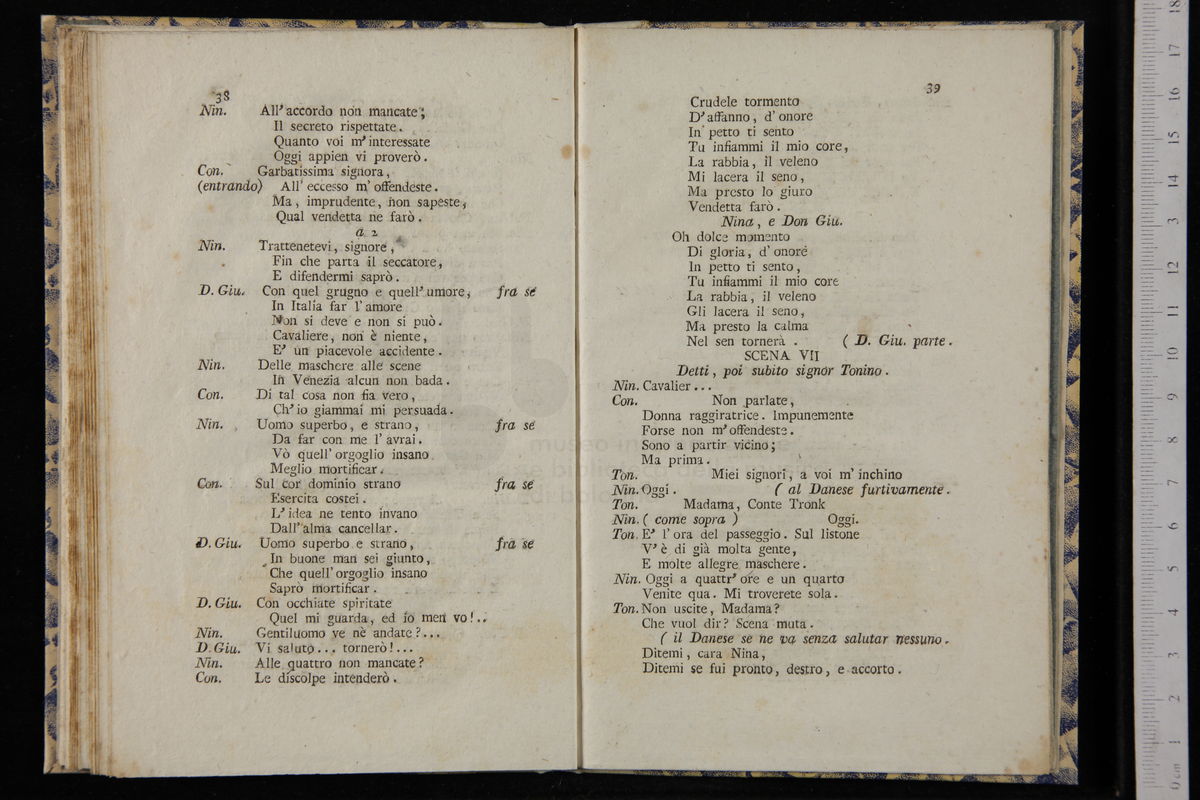 38
Nin. All' accordo non mancate;
Il secreto rispettate.
Quanto voi m' interessate
Oggi appien vi proverò.
Con. Garbatissima signora,
(entrando) All' eccesso m' offendeste.
Ma, imprudente, non sapeste,
Qual vendetta ne farò.
a 2
Nin. Trattenetevi, signore,
Fin che parta il seccatore,
E difendermi saprò.
D. Giu. Con quel grugno e quell' umore, fra sé
In Italia far l' amore
Non si deve e non si può.
Cavaliere, non è niente,
E' un piacevole accidente.
Nin. Delle maschere alle scene
In Venezia alcun non bada.
Con. Di tal cosa non fia vero,
Ch' io giammai mi persuada.
Nin. Uomo superbo, e strano, fra sé
Da far con me l' avrai.
Vò quell' orgoglio insano
Meglio mortificar.
Con. Sul cor dominio strano fra sé
Esercita costei.
L' idea ne tento invano
Dall' alma cancellar.
D. Giu. Uomo superbo e strano, fra se
In buone man sei giunto,
Che quell' orgoglio insano
Saprò mortificar.
D. Giu. Con occhiate spiritate
Quel mi guarda, ed io men vo!..
Nin. Gentiluomo ve nè andate?...
D. Giu. Vi saluto... tornerò!...
Nin. Alle quattro non mancate?
Con. Le discolpe intenderò.
39
Crudele tormento
D' affanno, d' onore
In petto ti sento
Tu infiammi il mio core,
La rabbia, il veleno
Mi lacera il seno,
Ma presto lo giuro
Vendetta farò.
Nina, e Don Giu.
Oh dolce momento
Di gloria, d' onore
In petto ti sento,
Tu infiammi il mio core
La rabbia, il veleno
Gli lacera il seno,
Ma presto la calma
Nel sen tornerà. ( D. Giu. parte.
SCENA VII
Detti, poi subito signor Tonino.
Nin. Cavalier...
Con. Non parlate,
Donna raggiratrice. Impunemente
Forse non m' offendeste.
Sono a partir vicino;
Ma prima.
Ton. Miei signori, a voi m' inchino
Nin. Oggi. ( al Danese furtivamente.
Ton. Madama, Conte Tronk
Nin. ( come sopra ) Oggi.
Ton. E' l' ora del passeggio. Sul listone
V' è di già molta gente,
E molte allegre maschere.
Nin. Oggi a quattr' ore e un quarto
Venite qua. Mi troverete sola.
Ton. Non uscite, Madama?
Che vuol dir? Scena muta.
( il Danese se ne va senza salutar nessuno.
Ditemi, cara Nina,
Ditemi se fui pronto, destro, e accorto.